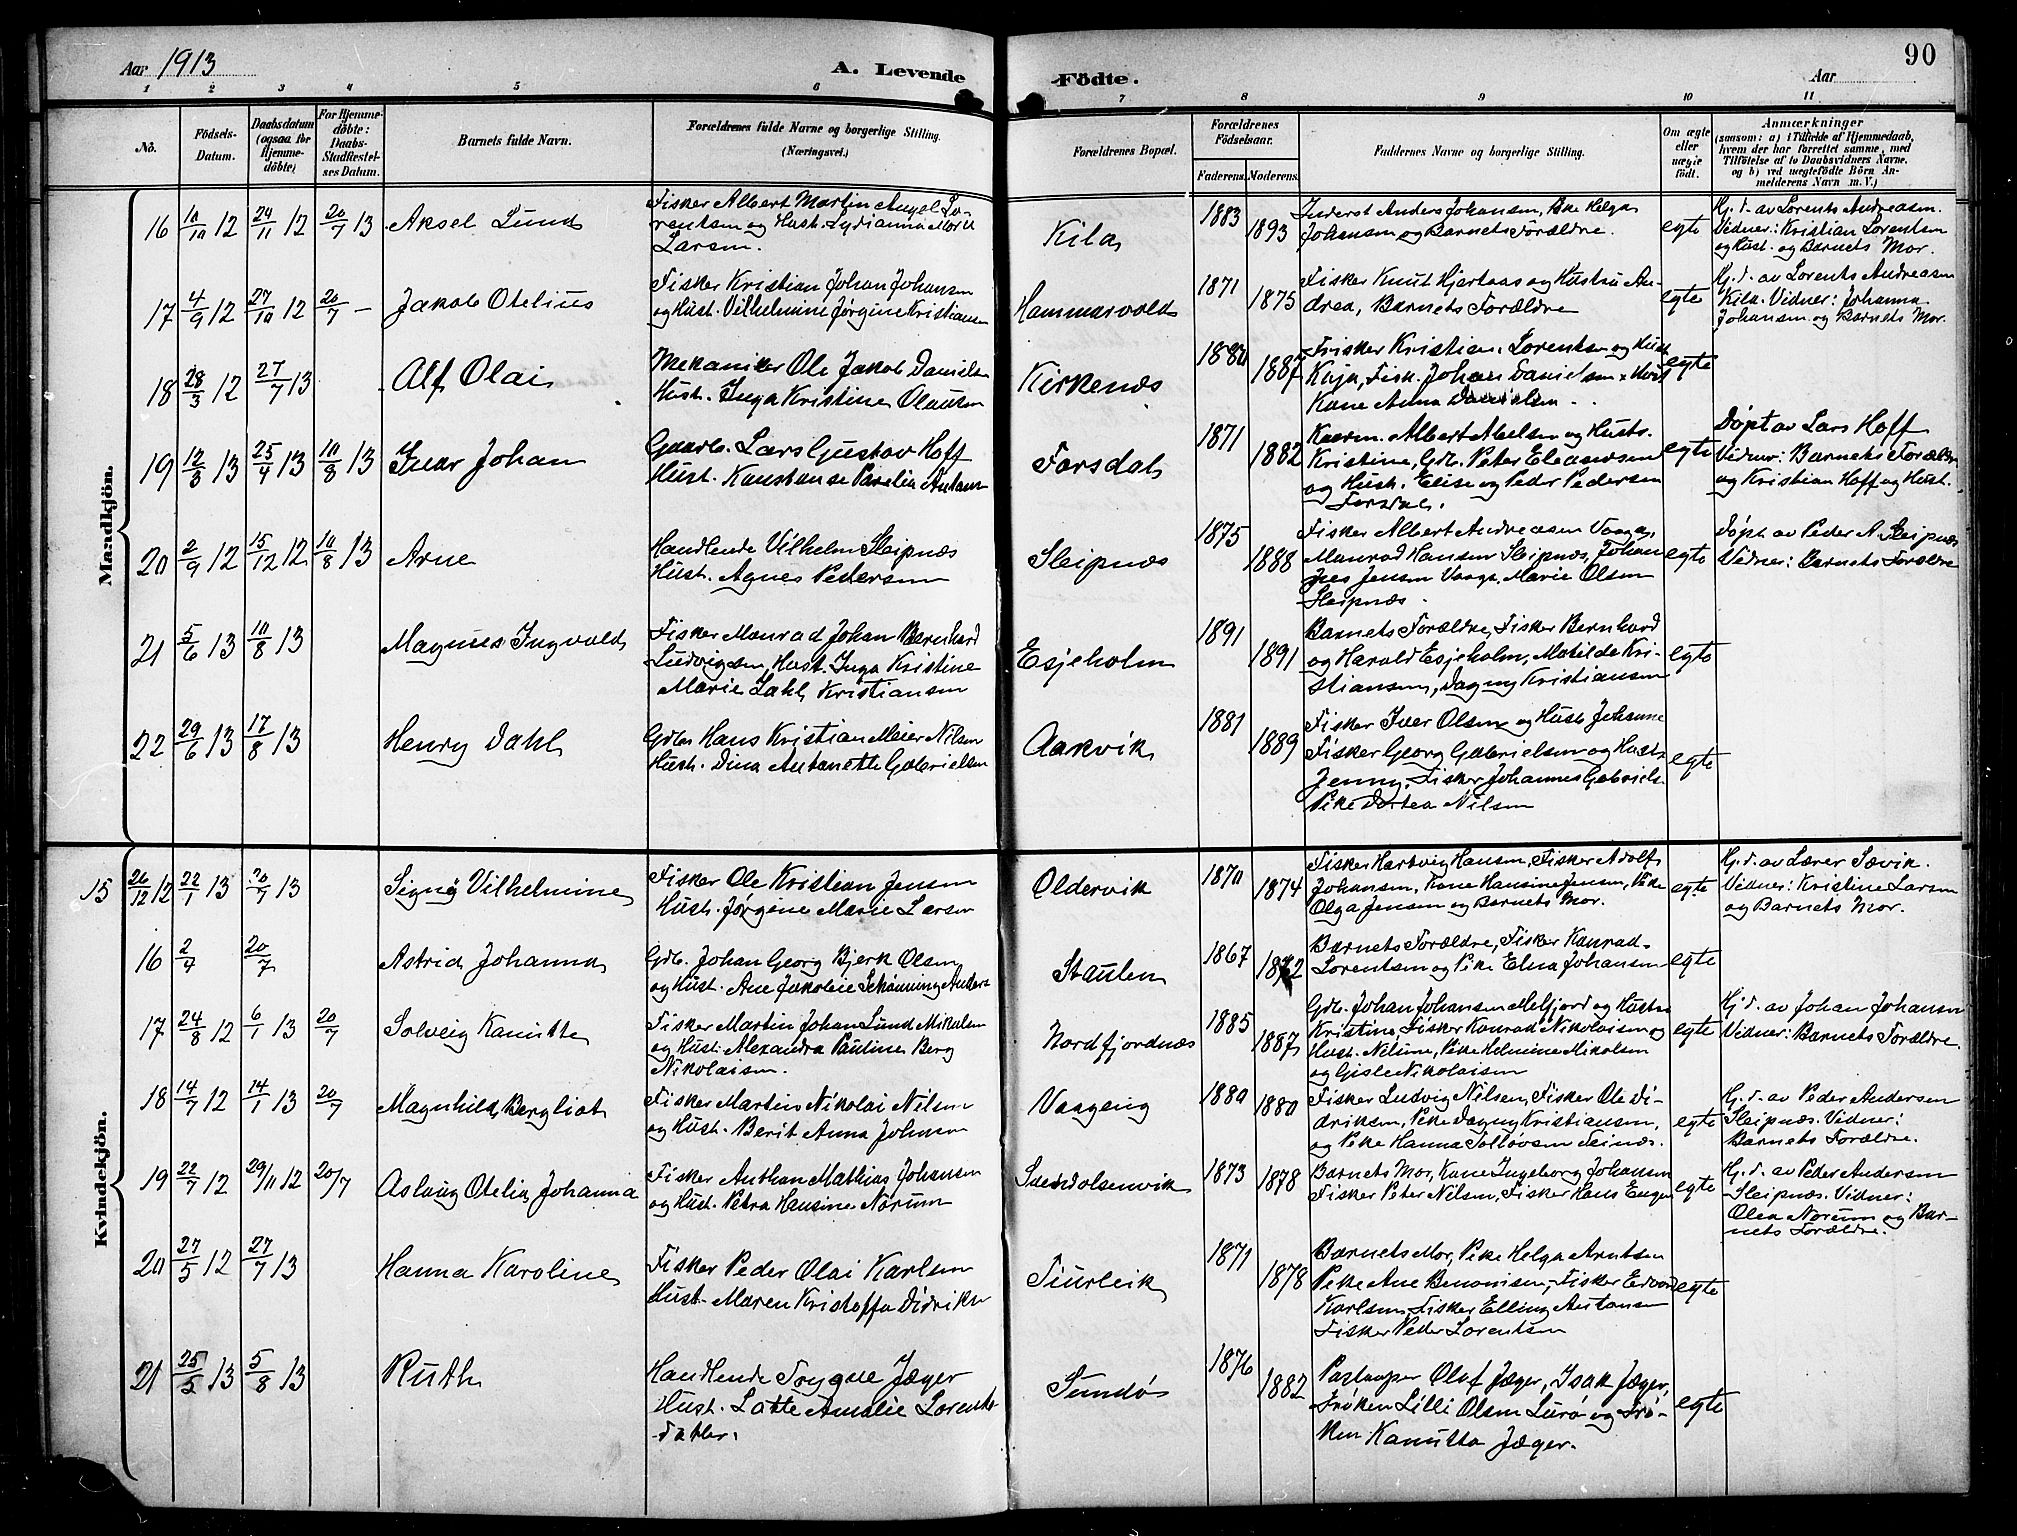 Aar 1913
A. Levende
Födte.
Aar
90
1 2 3 4 5 6 7 8 9 10 11
No.
Födsels-Datum.
Daabsdatum (ogsaa for Hjemmedöbte)
For Hjemmedöbte: Daabs-Stadfæstelses Datum.
Barnets fulde Navn.
Forældrenes fulde Navne og borgerlige Stilling. (Næringsvei.)
Forældrenes Bopæl.
Forældrenes Födselsaar.
Faderens. Moderens.
Faddernes Navne og borgerlige Stilling.
Om ægte eller uægte födt.
Anmærkninger
(saasom: a) i Tilfælde af Hjemmedaab, hvem der har forrettet samme, med Tilföielse af to Daabsvidners Navne. og b) ved uægtefödte Börn Anmelderens Navn m. V.)
Mandkjön.
16 10/10 12 24/11 12 20/7 13 Aksel Lund
Fisker Albert Martin Angel Lo-
rentsen og Hust. Lydianna Maria
Larsen.
Kila
1883 1893
Inderst Anders Johansen, Pike Helga
Johansen og Barnets Forældre.
egte
Hj. d. av Lorents Andreasen.
Vidner: Kristian Lorentsen
og Hust. og Barnets Mor.
17 4/9 12 27/10 12 20/7 - Jakob Otelius
Fisker Kristian Johan Johansen
og Hust. Vilhelmine Jørgine Kristiansen
Hammarvold
1871 1875
Fisker Knut Hjertaas og Hustru An-
drea, Barnets Forældre
egte
Hj. d. av Lorents Andreasen
Kila. Vidner: Johanna
Johansen og Barnets Mor.
18 28/3 12 27/7 13 Alf Olai
Mekaniker Ole Jakob Danielsen
Hust. Inga Kristine Olausen
Kirkenæs
1880 1887
Fisker Kristian Lorentsen og Hust
Kaja, Fisk. Johan Danielsen
Kone Anna Danielsen
egte
19 12/3 13 25/4 13 10/8 13 Ivar Johan
Gaardb. Lars Gustav Hoff
Hust. Konstanse Parelia Antons
Forsdal
1871 1882
Kaarm. Albert Abelsen og Hustr.
Kristine, Gdb. Peter Eleasersen
og Hust. Elise og Peder Pedersen
Forsdal.
egte
Døpt av Lars Hoff
Vidner: Barnets Forældre
og Kristian Hoff og Hust.
20 2/9 12 15/12 12 10/8 13 Arne
Handlende Vilhelm Sleipnæs
Hust. Agnes Pedersen
Sleipnæs
1875 1888
Fisker Albert Andreasen Vaaga,
Manrad Hansen Sleipnæs, Johan
Jensen Vaaga, Marie Olsen
Sleipnæs.
egte
Døpt av Peder A. Sleipnæs
Vidner: Barnets Forældre
21 5/6 13 10/8 13 Magnus Ingvald
Fisker Monrad Johan Bernhard
Ludvigsen, Hust. Inga Kristine
Marie Dahl Kristiansen
Esjeholm
1891 1891
Barnets Forældre, Fisker Bernhard
og Harald Esjeholm, Matilde Kri-
stiansen, Dagny Kristiansen
egte
22 29/6 13 17/8 13 Henry Dahl
Gdbr Hans Kristian Meier Nilsen
Hust. Dina Antonette Gabrielsen
Aakvik
1881 1889
Fisker Iver Olsen og Hust Johanne
Fisker Georg Gabrielsen og Hust
Jenny, Fisker Johannes Gabriels.
Pike Dortea Nilsen
egte
Kvindekjön.
15 26/12 12 22/1 13 20/7 13 Signy Vilhelmine
Fisker Ole Kristian Jensen
Hust. Jørgine Marie Larsen
Oldervik
1870 1874
Fisker Hartvig Hansen, Fisker Adolf
Johansen, Kone Hansine Jensen, Pike
Olga Jensen og Barnets Mor.
egte
Hj. d. av Lærer Sævik.
Vidner: Kristine Larsen
og Barnets Mor.
16 2/4 20/7 Astrid Johanna
Gdb. Johan Georg Bjerk Olsen
og Hust. Ane Jakobie Schønning Anders
Staulen
1867
Barnets Forældre, Fisker Konrad
Lorentsen og Pike Elna Johansen
egte
17 24/8 12 6/1 13 20/7 Solveig Kanutte
Fisker Martin Johan Lund Nikolaisen
og Hust. Alexandra Pauline Berg
Nikolaisen.
Nordfjordnæs
1885 1887
Gdb. Johan Johansen Melfjord og Hustru
Kristine, Fisker Konrad Nikolaisen og
Hust. Nelsine, Pike Helmine Nikolaisen
og Gisle Nikolaisen
egte
Hj. d. av Johan Johansen
Vidner: Barnets Forældre.
18 14/7 12 14/1 13 20/7 Magnhild Bergliot
Fisker Martin Nikolai Nilsen
og Hust. Berit Anna Johnsen
Vaageng
1880 1880
Fisker Ludvig Nilsen, Fisker Ole Di-
driksen, Pike Dagny Kristiansen,
og Pike Hanna Tollovsen Teinæs.
egte
Hj. d. av Peder Andersen
Sleipnæs. Vidner:
Barnets Forældre.
19 22/7 12 29/11 12 20/7 Aslaug Otelia Johanna
Fisker Anthon Mathias Johansen
og Hust. Petra Hansine Norum
Svendolsenvik
1873 1878
Barnets Mor, Kone Ingeborg Johansen
Fisker Peter Nilsen, Fisker Hans Eugen
egte
Hj. d. av Peder Andersen
Sleipnæs. Vidner:
Olea Norum og Bar-
nets Forældre.
20 27/5 12 27/7 13 Hanna Karoline
Fisker Peder Olai Karlsen
Hust. Maren Kristoffa Didriks
Tjurleik
1871 1878
Barnets Mor, Pike Helga Arntsen
Pike Ane Benonisen, Fisker Edvard
Karlsen, Fisker Elling Antonsen
Fisker Peder Lorentsen
egte
21 25/5 13 5/8 13 Ruth
Handlende Trygve Jæger
Hust. Lotte Amalie Lorents-
datter.
Sundø
1876 1882
Olaf Jæger, Isak Jæger,
Frøken Lilli Olsen Lurø og Frø-
ken Kanutta Jæger.
egte